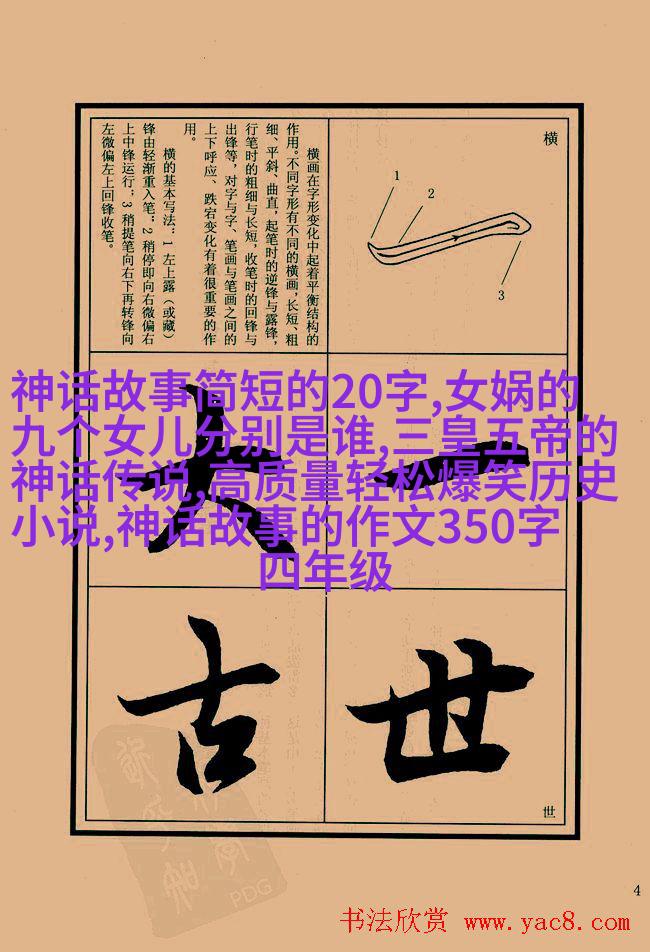 横
1
2
3
横画在字形变化中起着平衡结构的
作用。不同字形有不同的横画，长短、粗
细、平斜、曲直，起笔时的逆锋与露锋，
行笔时的粗细与长短，收笔时的回锋与
出锋等，对字与字、笔画与笔画之间的
上下呼应、跌宕变化有着很重要的作
用。
横的基本写法：1 左上露（或藏）
锋由轻渐重入笔；2 稍停即向右微偏右
上中锋运行；3 稍提笔向右下再转锋向
左微偏左上回锋收笔。
神话故事简短的20字,女娲的
九个女儿分别是谁,三皇五帝的
神话传说,高质量轻松爆笑历史
小说,神话故事的作文350字
四年级
一
大
世
古
世
PDG
4
书法欣赏 www.yac8.com